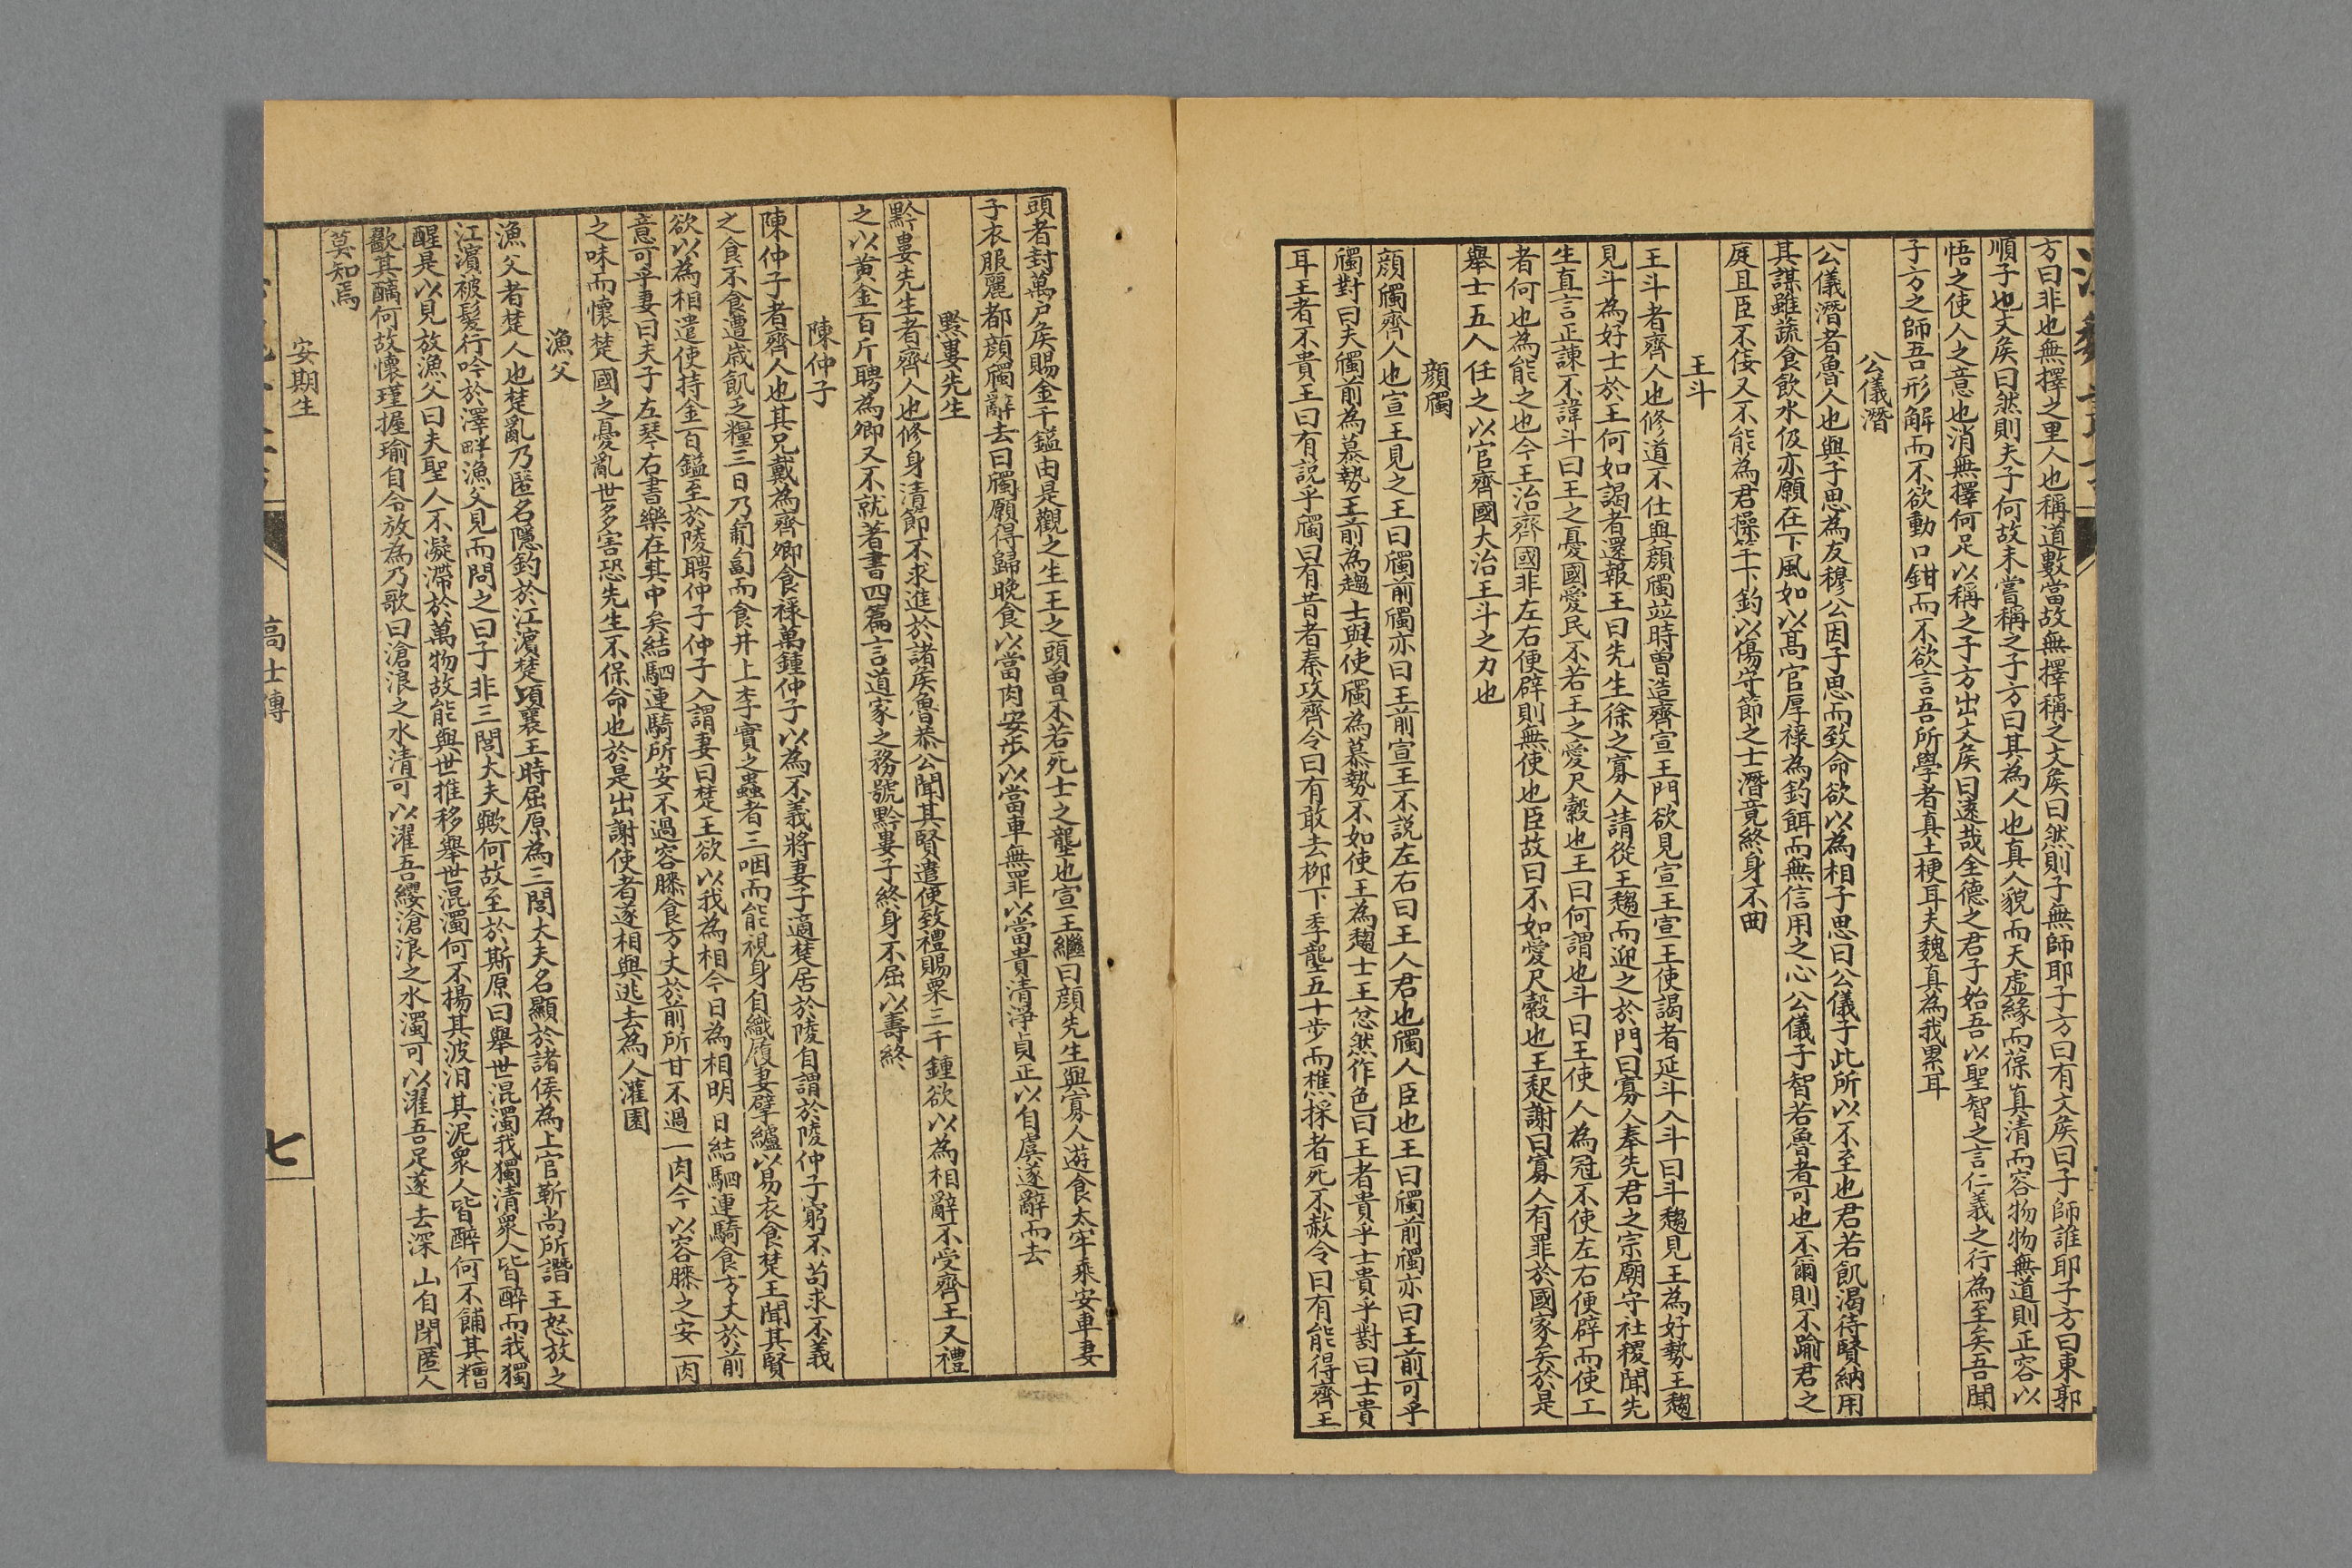 方曰非也無擇之里人也稱道數當故無擇稱之文矦曰然則子無師耶子方曰有文矦曰子師誰耶子方曰東郭
順子也文矦曰然則夫子何故未嘗稱之子方曰其為人也真人貌而天虛緣而葆真清而容物物無道則正容以
悟之使人之意也消無擇何足以稱之子方出文矦曰遠哉全德之君子始吾以聖智之言仁義之行為至矣吾聞
子方之師吾形解而不欲動口鉗而不欲言吾所學者真土梗耳夫魏真為我累耳
公儀潛
公儀潛者魯人也與子思為友穆公因子思而致命欲以為相子思曰公儀子此所以不至也君若飢渴待賢納用
其謀雖蔬食飲水伋亦願在下風如以高官厚祿為釣餌而無信用之心公儀子智若魯者可也不爾則不踰君之
庭且臣不佞又不能為君操竿下釣以傷守節之士潛竟終身不曲
王斗
王斗者齊人也修道不仕與顏斶竝時曾造齊宣王門欲見宣王宣王使謁者延斗入斗曰斗趨見王為好勢王趨
見斗為好士於王何如謁者還報王曰先生徐之寡人請從王趨而迎之於門曰寡人奉先君之宗廟守社稷聞先
生直言正諫不諱斗曰王之憂國愛民不若王之愛尺縠也王曰何謂也斗曰王使人為冠不使左右便辟而使工
者何也為能之也今王治齊國非左右便辟則無使也臣故曰不如愛尺縠也王起謝曰寡人有罪於國家矣於是
舉士五人任之以官齊國大治王斗之力也
顏斶
顏斶齊人也宣王見之王曰斶前斶亦曰王前宣王不說左右曰王人君也斶人臣也王曰斶前斶亦曰王前可乎
斶對曰夫斶前為慕勢王前為趨士與使斶為慕勢不如使王為趨士王忿然作色曰王者貴乎士貴乎對曰士貴
耳王者不貴王曰有說乎斶曰有昔者秦攻齊令曰有敢去柳下季壟五十步而樵採者死不赦令曰有能得齊王
頭者封萬戶矦賜金千鎰由是觀之生王之頭曾不若死士之壟也宣王繼曰顏先生與寡人遊食太牢乘安車妻
子衣服麗都顏斶辭去曰斶願得歸晚食以當肉安步以當車無罪以當貴清淨貞正以自虞遂辭而去
黔婁先生
黔婁先生者齊人也修身清節不求進於諸矦魯恭公聞其賢遣使致禮賜粟三千鍾欲以為相辭不受齊王又禮
之以黃金百斤聘為卿又不就著書四篇言道家之務號黔婁子終身不屈以壽終
陳仲子
陳仲子者齊人也其兄戴為齊卿食祿萬鍾仲子以為不義將妻子適楚居於陵自謂於陵仲子窮不苟求不義
之食不食遭歲飢乏糧三日乃匍匐而食井上李實之蟲者三咽而能視身自織履妻擘纑以易衣食楚王聞其賢
欲以為相遣使持金百鎰至於陵聘仲子仲子入謂妻曰楚王欲以我為相今日為相明日結駟連騎食方丈於前
意可乎妻曰夫子左琴右書樂在其中矣結駟連騎所安不過容膝食方丈於前所甘不過一肉今以容膝之安一肉
之味而懷楚國之憂亂世多害恐先生不保命也於是出謝使者遂相與逃去為人灌園
漁父
漁父者楚人也楚亂乃匿名隱釣於江濱楚頃襄王時屈原為三閭大夫名顯於諸侯為上官靳尚所譖王怒放之
江濱被髮行吟於澤畔漁父見而問之曰子非三閭大夫歟何故至於斯原曰舉世混濁我獨清衆人皆醉而我獨
醒是以見放漁父曰夫聖人不凝滯於萬物故能與世推移舉世混濁何不揚其波汩其泥衆人皆醉何不餔其糟
歠其醨何故懷瑾握瑜自令放為乃歌曰滄浪之水清可以濯吾纓滄浪之水濁可以濯吾足遂去深山自閉匿人
莫知焉
安期生
高士傳
七